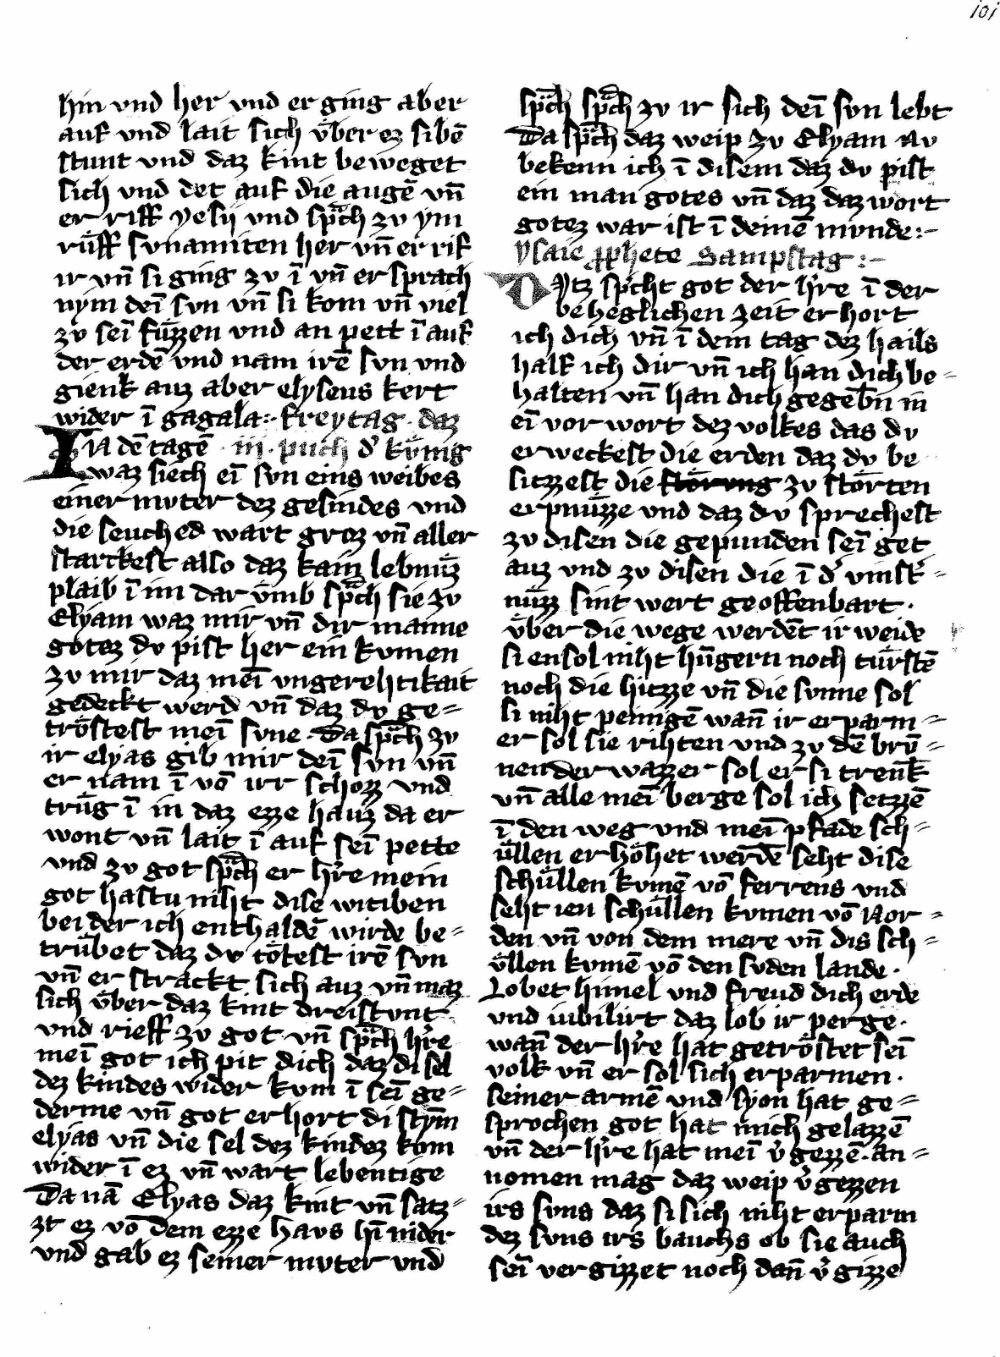 101
hin vnd her vnd er ging aber
auf vnd lait sich vͤber ez sibē
stunt vnd daz kint beweget
sich vnd det auf die augē vn̄
er riff yesij vnd sp̄ch zv ym
rüff svnamiten her vn̄ er rif
ir vn̄ si ging zv ī vn̄ er sprach
nym dei̅ svn vn̄ si kom vn̄ viel
zv sei̅ füzzen vnd an pett ī auf
der erdē vnd nam irē svn vnd
gienk auz aber elyseus kert
wider ī gagala :· freytag · daz
IN dē tagē · iij · puch d' kv̈nig
waz siech ei̅ svn eins weibes
einer mvter dez gesindes vnd
die seuched wart groz vn̄ aller
starkest also daz kain lebnüz
plaib ī im dar v̈mb sp̄ch sie zv
Elyam waz mir vn̄ dir manne
gotez dv pist her ein kvmen
zv mir daz mei̅ vngerehtikait
gedeckt werd vn̄ daz dv ge=
tröstest mei̅ svne Da sp̄ch zv
ir elyas gib mir dei̅ svn vn̄
er nam ī vō irr schozz vnd
trüg ī in daz ezze hauz da er
wont vn̄ lait ī auf sei̅ pette
vnd zv got sp̄ch er h're mein
got hastu niht dise witiben
bei der ich enthaldē wirde be=
trübet daz dv tötest irē svn
vn̄ er strackt sich auz vn̄ maz
sich vͤber daz kint dreistvnt
vnd rieff zv got vn̄ sp̄ch h're
mei̅ got ich pit dich daz di sel
dez kindes wider kvm ī sei̅ ge=
derme vn̄ got erhort di stȳm
elyas vn̄ die sel dez kindez kom
wider ī ez vn̄ wart lebentige
Da nā Elyas daz kint vn̄ satz=
zt ez vō dem ezze havs hī nider
vnd gab ez seiner mvter vnd
sp̄ch sp̄ch zv ir sich dei̅ svn lebt
Da sp̄ch daz weip zv Elyam Nv
bekenn ich ī disem daz dv pist
ein man gotes vn̄ daz daz wort
gotez war ist ī deinē mvnde :-
ysaie p̱phete Sampstag :-
Dytz sp̄cht got der h're ī der
beheglichen zeit erhort
ich dich vn̄ ī dem tag dez hails
half ich dir vn̄ ich han dich be=
halten vn̄ han dich gegebn̄ in
ei̅ vor wort dez volkes das dv
erweckest die erden daz dv be
sitzzest die störung zv störten
erpnüzze vnd daz dv sprechest
zv disen die gepunden sei̅ get
auz vnd zv disen die ī d' vinst'=
nüzz sint wert geoffenbart ·
vͤber die wege werdēt ir weide
si ensol niht hv̈ngern noch türstē
noch die hitzze vn̄ die svnne sol
si niht peinigē wan̄ ir erparm=
er sol sie rihten vnd zv dē brv̈=
nen der wazzer sol er si trenk̄
vn̄ alle mei̅ berge sol ich setzzē
ī den weg vnd mei̅ pfade sch=
üllen erhöhet werdē seht dise
schüllen kvmē vō ferrens vnd
seht ien schüllen kvmen vō Nor=
den vn̄ von dem mere vn̄ dis sch=
v̈llen kvmē vō den svden lande ·
Lobet himel vnd frend dich erde
vnd iubilirt daz lob ir perge ·
wan̄ der h're hat getröstet sei̅
volk vn̄ er sol sich erparmen ·
seiner armē vnd syon hat ge=
sprochen got hat mich gelazzē
vn̄ der h're hat mei̅ v'gezzē · an=
nomen mag daz weip v'gezzen
irs svns daz si sich niht erparm
dez svns irs bauchs ob sie auch
sei̅ vergizzet noch dan̄ v'gizze